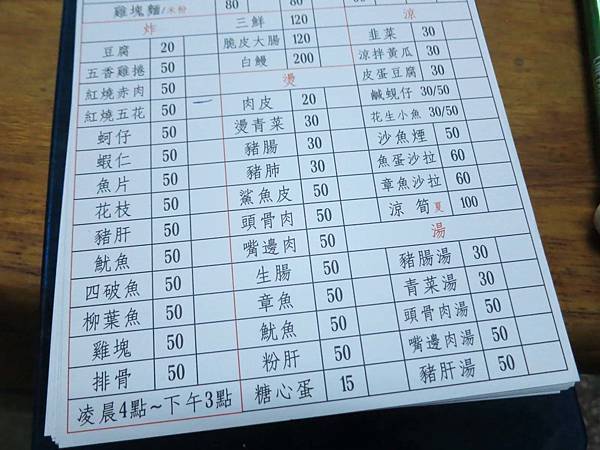 雞塊麵/米粉 80 80 80
炸
豆腐 20
五香雞捲 50
紅燒赤肉 50
紅燒五花 50
蚵仔 50
蝦仁 50
魚片 50
花枝 50
豬肝 50
魷魚 50
四破魚 50
柳葉魚 50
雞塊 50
排骨 50
凌晨4點~下午3點
三鮮 120
脆皮大腸 120
白鰻 200
燙
肉皮 20
燙青菜 30
豬腸 30
豬肺 30
鯊魚皮 50
頭骨肉 50
嘴邊肉 50
生腸 50
章魚 50
魷魚 50
粉肝 50
糖心蛋 15
涼
韭菜 30
涼拌黃瓜 30
皮蛋豆腐 30
鹹蜆仔 30/50
花生小魚 30/50
沙魚煙 50
魚蛋沙拉 60
章魚沙拉 60
涼筍夏 100
湯
豬腸湯 30
青菜湯 30
頭骨肉湯 50
嘴邊肉湯 50
豬肝湯 50